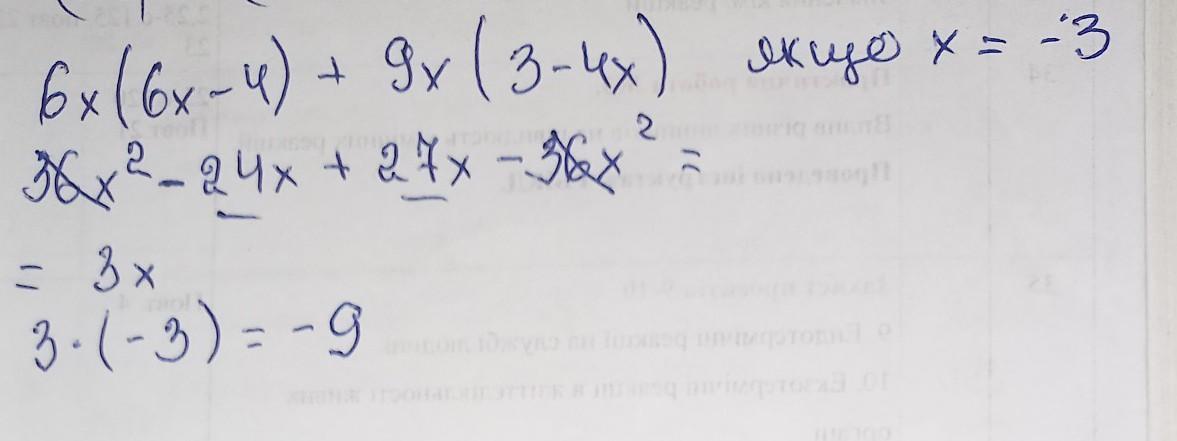 6x(6x-4) + 9x(3-4x) якщо x = -3
36x² - 24x + 27x - 36x² =
= 3x
3·(-3) = -9